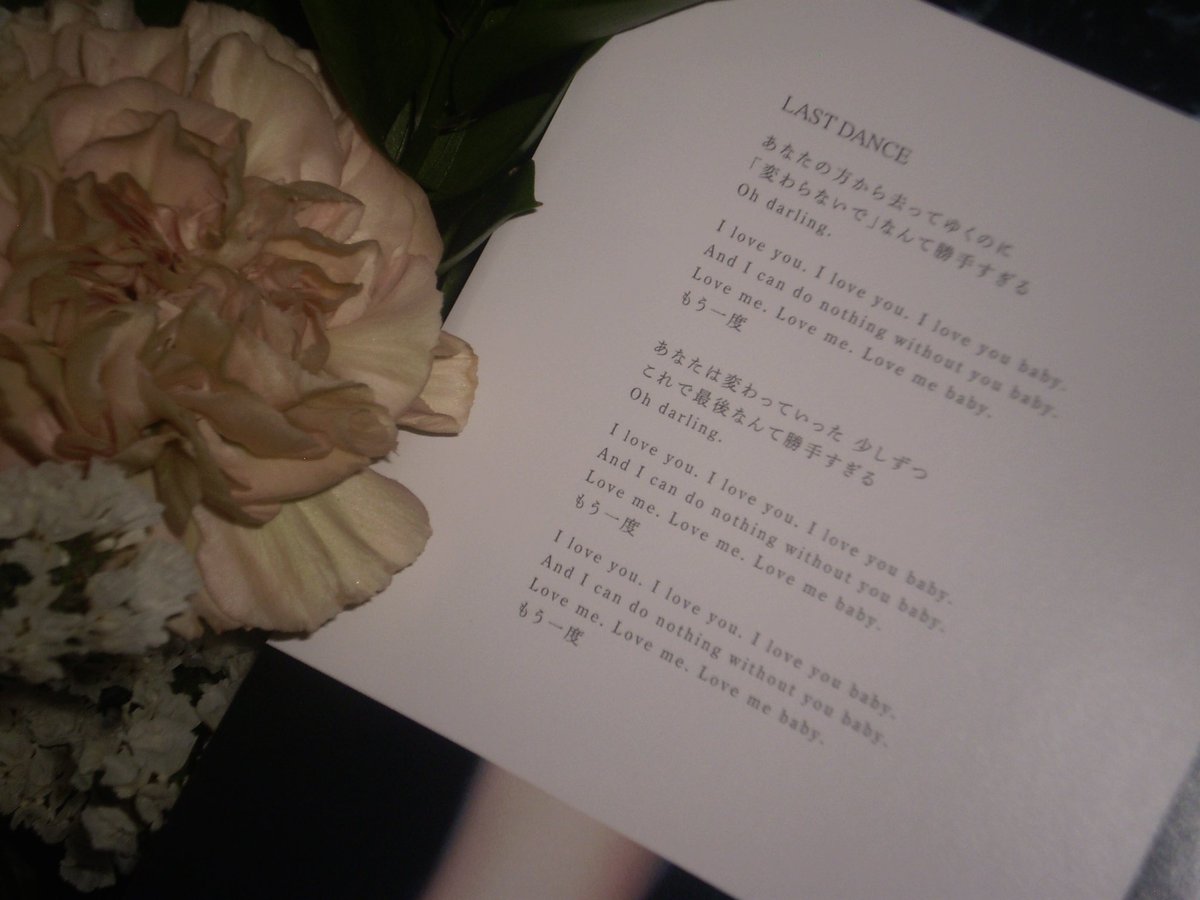 LAST DANCE
あなたの方から去ってゆくのに
「変わらないで」なんて勝手すぎる
Oh darling.
I love you. I love you. I love you baby.
And I can do nothing without you baby.
Love me. Love me. Love me baby.
もう一度
あなたは変わっていった 少しずつ
これで最後なんて勝手すぎる
Oh darling.
I love you. I love you. I love you baby.
And I can do nothing without you baby.
Love me. Love me. Love me baby.
もう一度
I love you. I love you. I love you baby.
And I can do nothing without you baby.
Love me. Love me. Love me baby.
もう一度